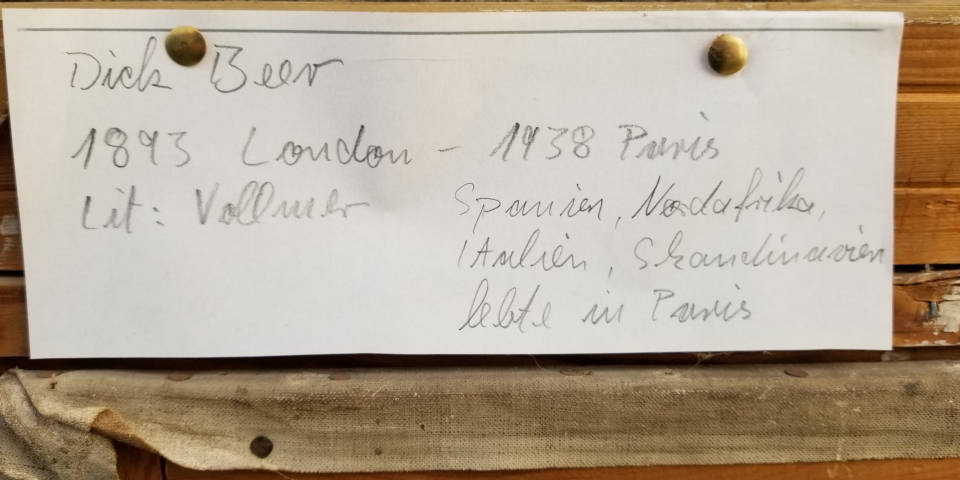 Dick Beer
1893 London - 1938 Paris
Lit: Vollmer
Spanien, Nordafrika,
Italien, Skandinavien
lebte in Paris